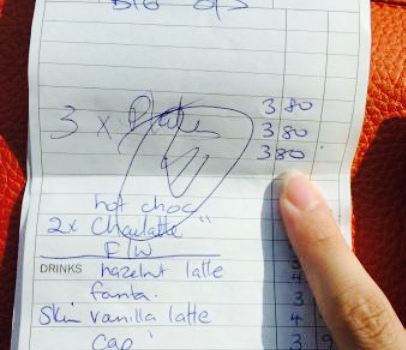 3 80
3 x 3 80
3 80
hot choc
2x Chailatte "
F/W
DRINKS hazelnut latte
fanta. 3
Skim vanilla latte 4
cap 3 9